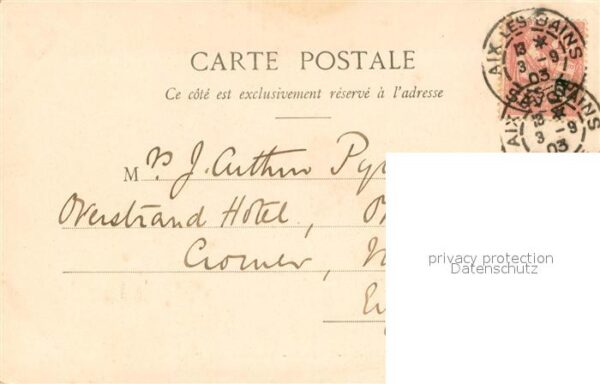 CARTE POSTALE
Ce côté est exclusivement réservé à l'adresse
AIX LES BAINS
13 *
3 -9
03
AIX LES BAINS
13 *
3 -9
03
Mrs J. Arthur
Overstrand Hotel,
Cromer,
privacy protection
Datenschutz